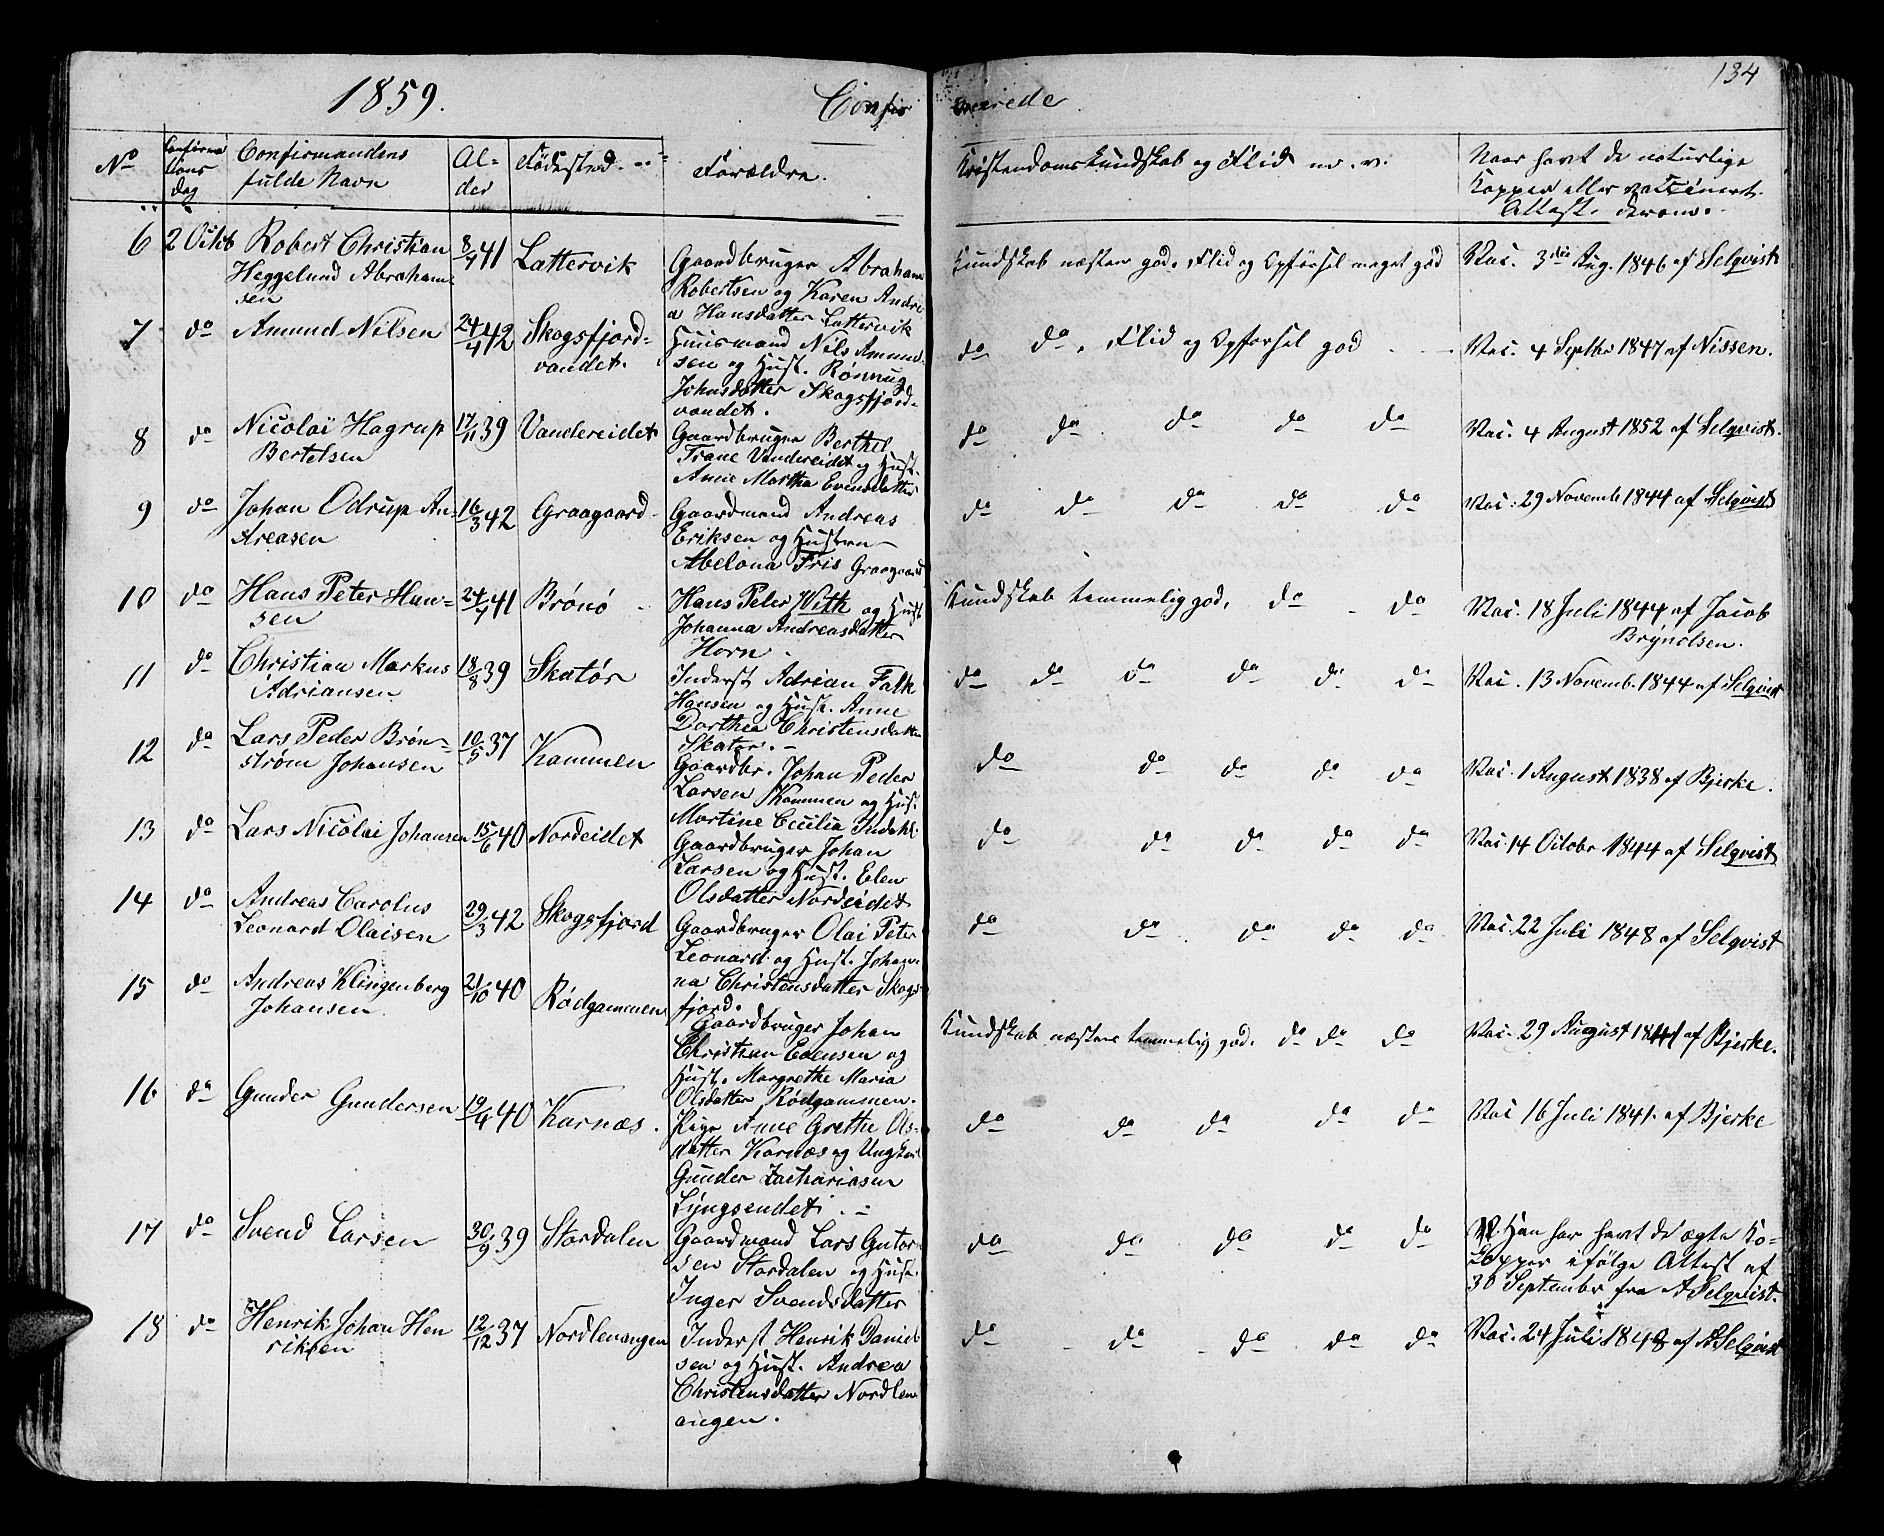 134
1859. Confirmerede
No Confirmationsdag Confirmandens fulde Navn Alder Fødested. Forældre. Kristendomskundskab og Flid m. v. Naar havt de naturlige Kopper eller vaccineret. Attest derom.
6 2 Octb Robert Christian 8/4 41 Lattervik Gaardbruger Abraham Kundskab næsten god, Flid og Opførsel meget god Vac. 3die Aug. 1846 af Selqvist
Heggelund Abraham- Robertsen og Karen Andre-
sen a Hansdatter Lattervik
7 do Amund Nilsen 24/4 42 Skogsfjord- Huusmand Nils Amund- do do, Flid og Opførsel god Vac. 4 Septbr 1847 af Nissen.
vandet. sen og Hust. Rønnug
Johnsdatter Skogsfjord-
vandet.
8 do Nicolai Hagrup 17/11 39 Vandereidet Gaardbruger Berthel do do do do do Vac. 4 August 1852 af Selqvist.
Bertelsen Trane Vandereidet og Hust.
Anne Martha Evensdatter
9 do Johan Odrup An- 16/3 42 Graagaard Gaardmand Andreas do do do do do Vac. 29 Novemb 1844 af Selqvist
dreasen Eriksen og Hustru
Abelona Fris Graagaard
10 do Hans Peter Han- 24/4 41 Brønø Hans Peter With og Hust Kundskab temmelig god, do do Vac. 18 Juli 1844 af Jacob
sen Johanna Andreasdatter Brynolsen.
Horn
11 do Christian Markus 18/8 39 Skatør Inderst Adrian Falk do do do do do do Vac. 13 Novemb. 1844 af Selqvist
Adriansen Hansen og Hust. Anne
Dorthea Christensdatter
Skatør.
12 do Lars Peder Brøn- 10/5 37 Kammen Gaardbr. Johan Peder do do do do do Vac. 1 August 1838 af Bjerke.
strøm Johansen Larsen Kammen og Hust.
Martine Cecilia Indahl.
13 do Lars Nicolai Johansen 15/6 40 Nordeidet Gaardbruger Johan do do do do do Vac. 14 Octobr 1844 af Selqvist
Larsen og Hust. Elen
Olsdatter Nordeidet
14 do Andreas Carolus 29/3 42 Skogsfjord Gaardbruger Olai Peter do do do do do Vac. 22 Juli 1848 af Selqvist
Leonard Olaisen Leonard og Hust. Johan-
na Christensdatter Skogs-
fjord.
15 do Andreas Klingenberg 21/10 40 Rødgammen Gaardbruger Johan Kundskab næsten temmelig god. do do do Vac. 29 August 1841 af Bjerke.
Johansen Christian Evensen og
Hust. Margrethe Maria
Olsdatter Rødgammen.
16 do Gunder Gundersen 19/4 40 Karnæs. Pige Anne Grethe Ols- do do do do do Vac 16 Juli 1841. af Bjerke
datter Karnæs og Ungkarl
Gunder Zachariasen
Lyngseidet.
17 do Svend Larsen 30/9 39 Stordalen Gaardmand Lars Gutor- do do do do do Han har havt de ægte Ko-
sen Stordalen og Hust. kopper ifølge Attest af
Inger Svendsdatter 30 September fra A Selqvist.
18 do Henrik Johan Hen 12/12 37 Nordlenangen Inderst Henrik Daniel- do do do do do Vac. 24 Juli 1848 af A Selqvist
riksen sen og Hust. Andrea
Christensdatter Nordlen-
angen.